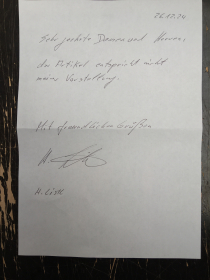 Sehr geehrte Damen und Herren,
der Artikel entspricht nicht
meiner Vorstellung.
Mit freundlichen Grüßen
H.